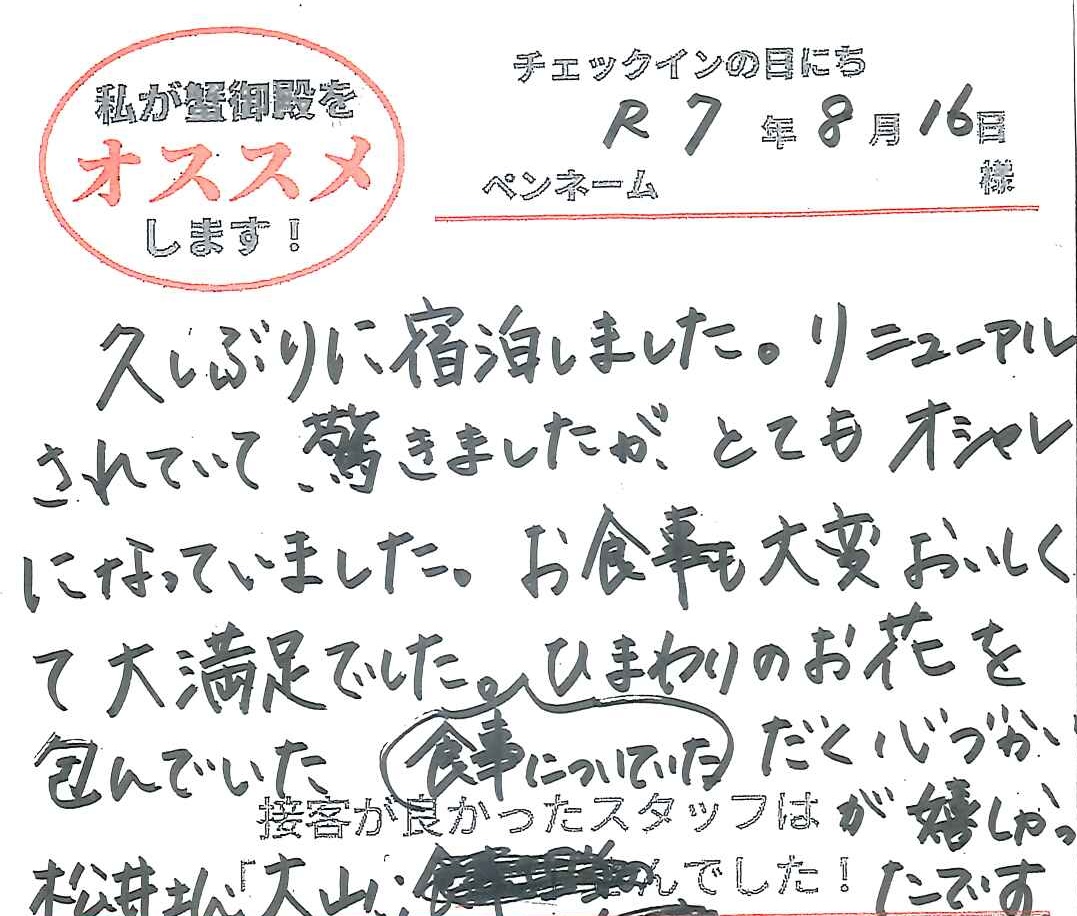 私が蟹御殿を
オススメ
します！
チェックインの日にち
R 7 年 8 月 16 日
ペンネーム 様
久しぶりに宿泊しました。リニューアル
されていて驚きましたが、とてもオシャレ
になっていました。お食事も大変おいしく
て大満足でした。ひまわりのお花を
包んでいた だく心づかい
食事についていた
が嬉しかっ
たです
接客が良かったスタッフは
松井さん「大山 んでした！